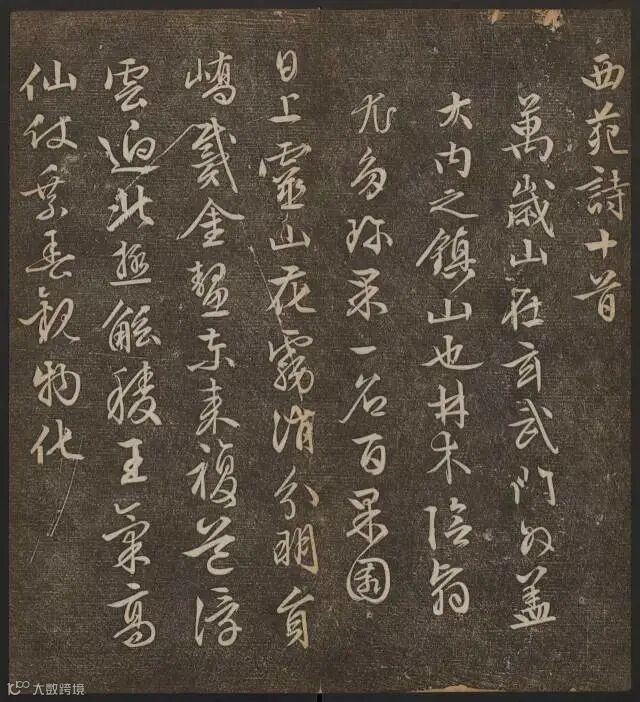 西苑詩十首
萬歲山在玄武門外蓋
大内之鎮山也卉木陰翳
尤多珍果一名百果園
日上靈山花霧消分明員
嶠戴金鰲東来複道浮
雲迥北極觚稜王氣高
仙仗乘春觀物化
大数跨境